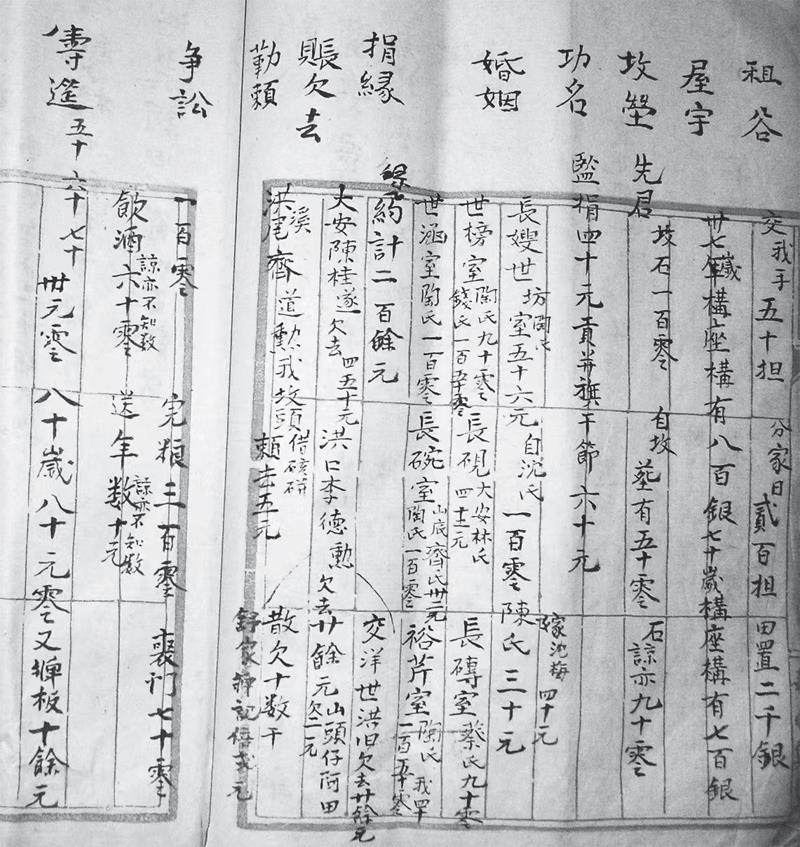 祖谷 交我手五十担 分家日貳百担 田置二千銀
屋宇 卅七歲構座構有八百銀七十歲構座構有七百銀
坟塋 先君坟石一百零 自坟塟有五十零 石諒亦九十零
功名 監捐四十元貢并旗干節六十元
婚姻 長嫂世坊陶氏室五十六元 自沈氏一百零陳氏三十元 嫁沈梅四十元
世榜室陶氏九十零錢氏一百五十零 長硯大安林氏四十二元 長磚室蔡氏九十零
世涵室陶氏一百零 長碗室山底齊氏卅二元陶氏一百零 裕芹室陶氏一百五十零
捐緣 約計二百餘元 交洋世洪旧欠去廿餘元
賬欠去 大安陳桂遂欠去四五十元 洪口李德勲欠去廿餘元山頭仔阿田欠二元
勤賴 洪溪尾齊道勲我坟頭借磚 賴去五元 散欠十数千
爭訟 一百零 完粮三百零 裏門七十零
飲酒六十零諒亦不知数 送年数十元諒亦不知数
壽筵 五十六十七十 卅元零 八十歲八十元零又坤板十餘元